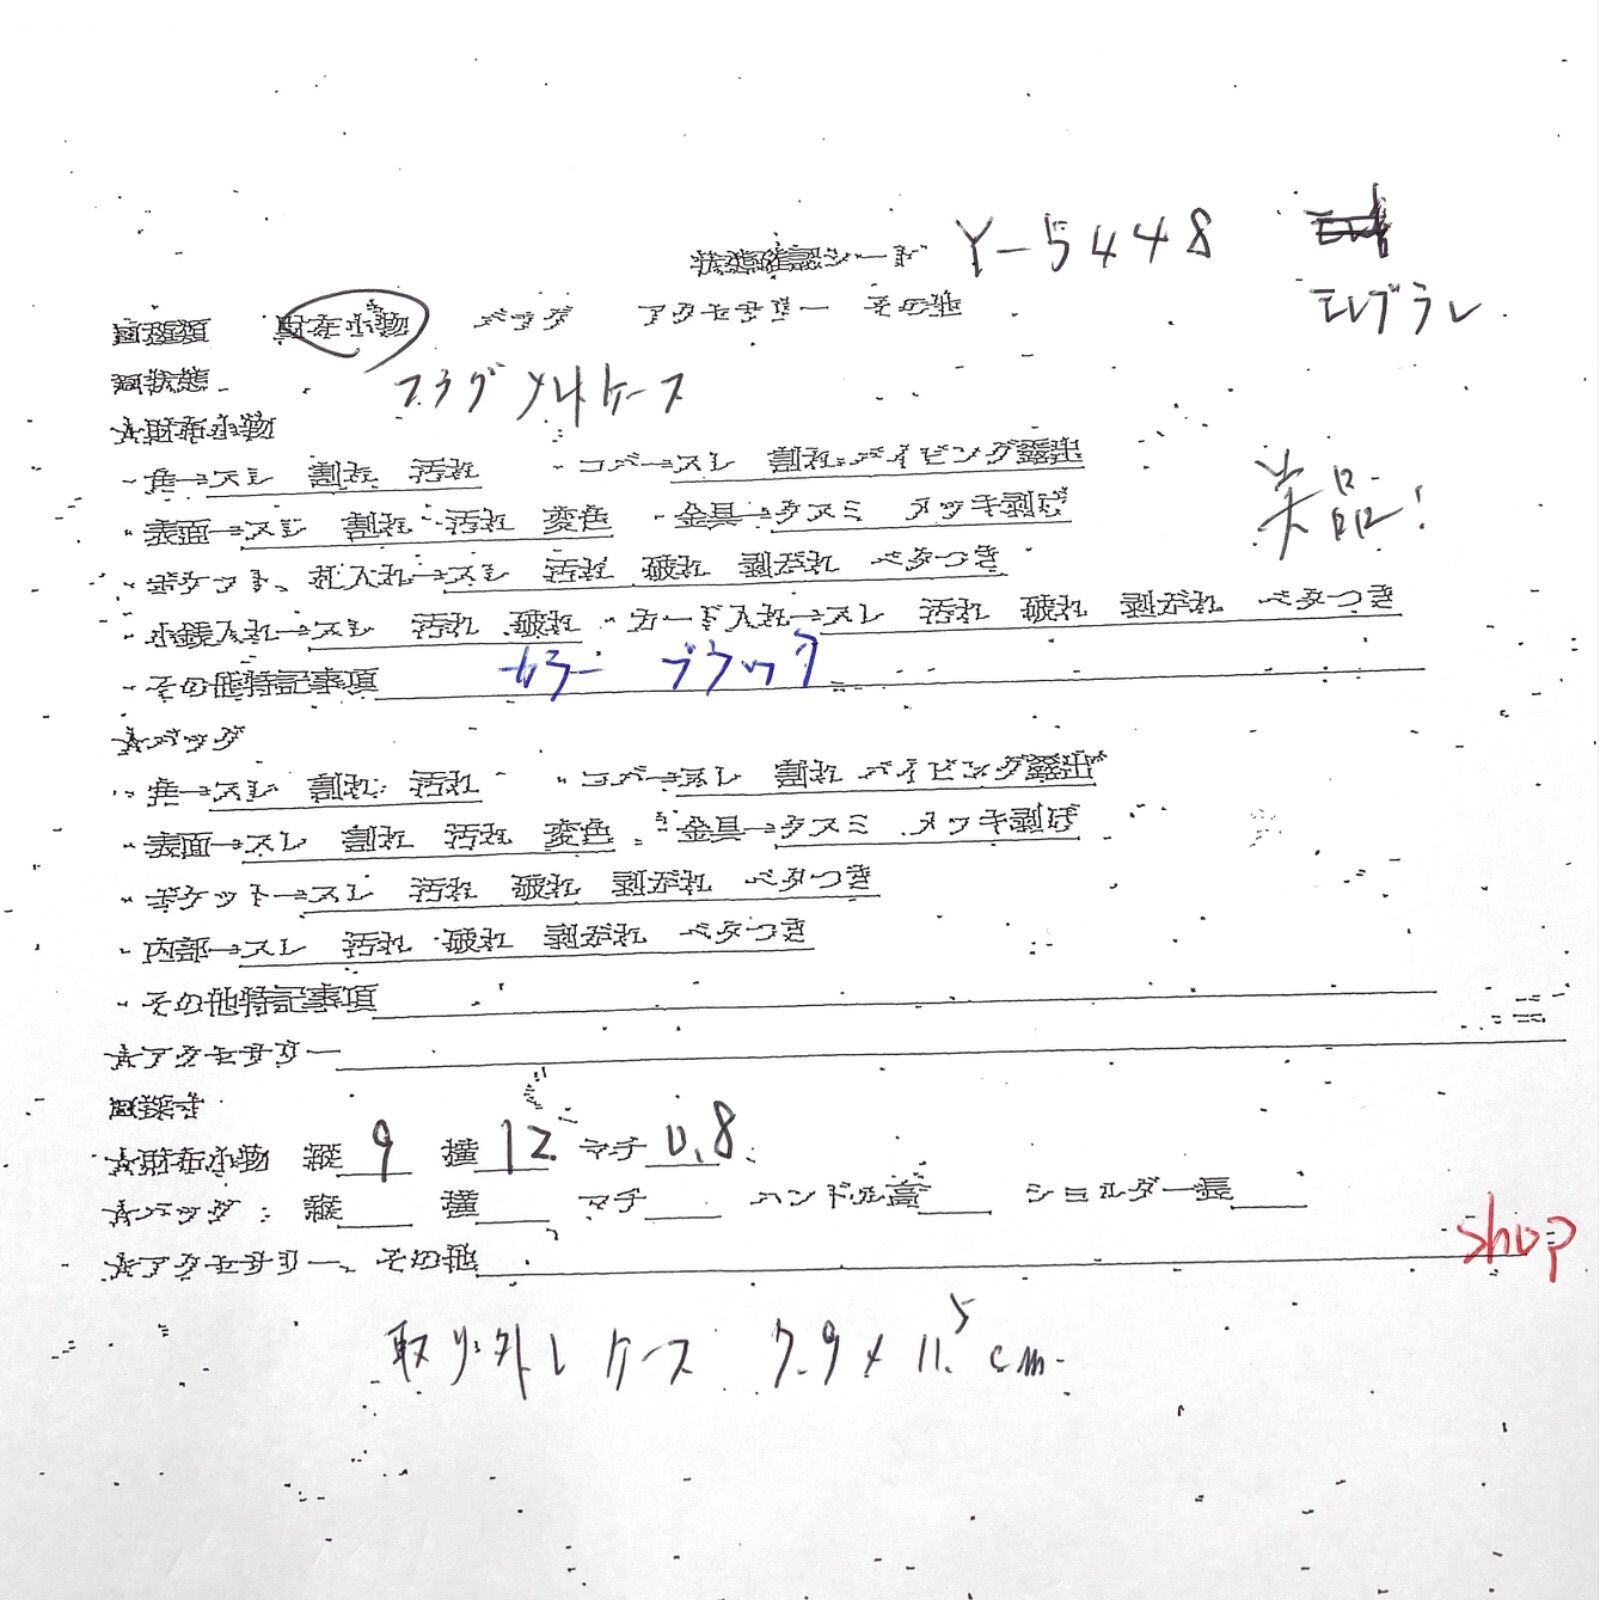 状態確認シート Y-5448
モンブラン
■種類 財布小物 バッグ アクセサリー その他
■状態
フラグメントケース
☆財布小物
・角→スレ 割れ 汚れ ・コバ→スレ 割れ パイピング露出
美品!
・表面→スレ 割れ 汚れ 変色 ・金具→クスミ メッキ剥げ
・ポケット、札入れ→スレ 汚れ 破れ 剥がれ ベタつき
・小銭入れ→スレ 汚れ 破れ ・カード入れ→スレ 汚れ 破れ 剥がれ ベタつき
・その他特記事項 カラー ブラック
☆バッグ
・角→スレ 割れ 汚れ ・コバ→スレ 割れ パイピング露出
・表面→スレ 割れ 汚れ 変色 ・金具→クスミ メッキ剥げ
・ポケット→スレ 汚れ 破れ 剥がれ ベタつき
・内部→スレ 汚れ 破れ 剥がれ ベタつき
・その他特記事項
☆アクセサリー
■採寸
☆財布小物 縦 9 横 12 マチ 0.8
☆バッグ 縦 横 マチ ハンドル高 ショルダー長
☆アクセサリー、その他
shop
取り外しケース 7.9×11.5cm